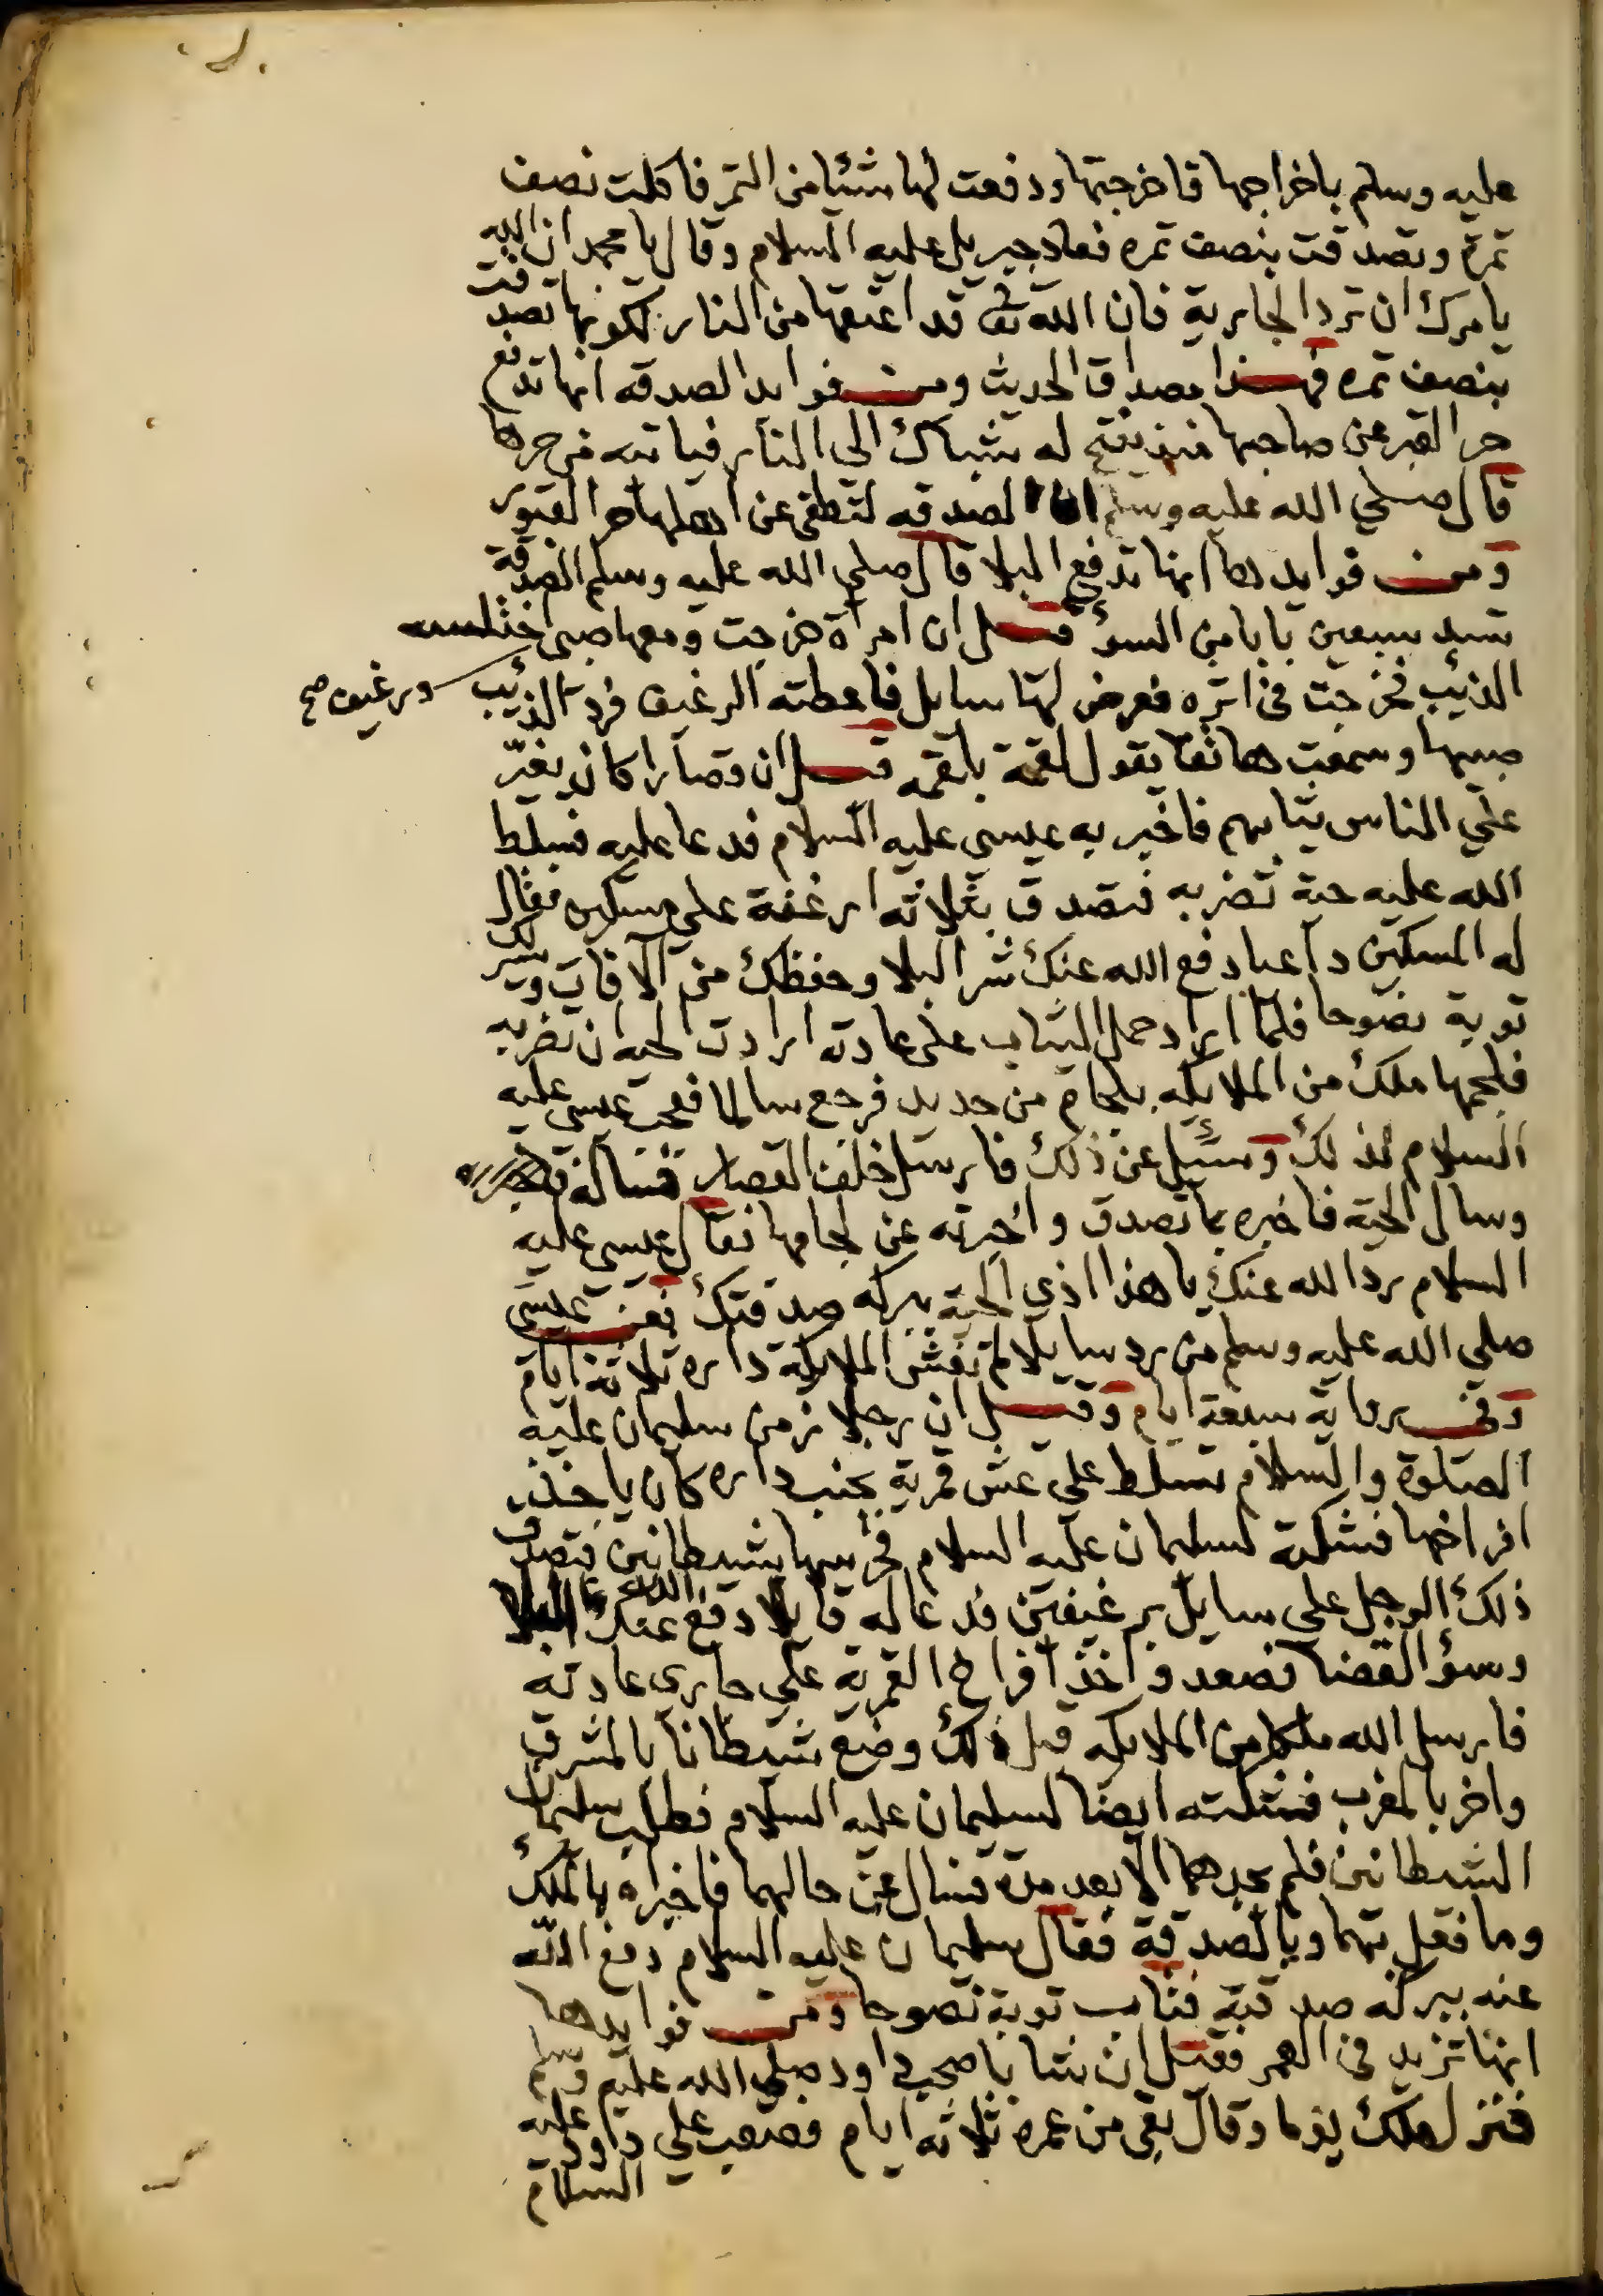 عليه وسلم باخراجها فاخرجتها ودفعت لها شئا من التمر فاكلت نصف
تمرة وتصدقت بنصف تمره فعاد جبريل عليه السلام وقال يا محمد ان الله
يامرك ان ترد الجارية فان الله تعا قد اعتقها من النار لكونها تصدقت
بنصف تمره فهذا مصداق الحديث ومن فوايد الصدقه انها تدفع
حر القبر عن صاحبها فمن يفتح له شباك الى النار فياتيه من حرها
قال صلي الله عليه وسلم ان الصدقه لتطفى عن اهلها حر القبور
ومن فوايدها انها تدفع البلا قال صلي الله عليه وسلم الصدقة
تسد سبعين بابا من السوء قيل ان امراة خرجت ومعها صبي اختلسه
الذئب فخرجت في اثره فعرض لها سايل فاعطته الرغيف فرد الذئب
ورغيف صح
صبيها وسمعت هاتفا يقول لقمة بلقمه قيل ان قصارا كان يغير
علي الناس ثيابهم فاخبر به عيسى عليه السلام فدعا عليه فسلط
الله عليه حية تضربه فتصدق بثلاثه ارغفة على مسكين فقال
له المسكين داعيا دفع الله عنك شر البلا وحفظك من الافات ويسر لك
توبة نصوحا فلما اراد حمل الثياب على عادته ارادت الحيه ان تضربه
فلجمها ملك من الملايكه بلجام من حديد فرجع سالما فعجب عيسى عليه
السلام لذلك وسئيل عن ذلك فارسل خلف القصار فساله
وسال الحية فاخبره بما تصدق واخبرته عن لجامها فقال عيسى عليه
السلام رد الله عنك يا هذا اذي الحية ببركه صدقتك فعن عيسى
صلي الله عليه وسلم من رد سايلا لم تغش الملايكة داره ثلاثة ايام
وفي رواية سبعة ايام وقيل ان رجلا زمن سليمان عليه
الصلوة والسلام تسلط علي عش قمرية بجنب داره كان ياخذ
افراخها فشكته لسليمان عليه السلام فحرسها بشيطانين فتصدق
ذلك الرجل على سايل برغيفين فدعا له قايلا دفع الله عنك البلا
وسؤ القضا فصعد واخذ افراخ القمرية علي جاري عادته
فارسل الله ملكا من الملايكه قبل ذلك وضع شيطانا بالمشرق
واخر بالمغرب فشكته ايضا لسليمان عليه السلام فطلب سليمان
الشيطانين فلم يجدهما الا بعد مدة فسال عن حالهما فاخبراه بالملك
وما فعل بهما وبالصدقة فقال سليمان عليه السلام دفع الله
عنه ببركه صدقته فتاب توبة نصوحا ومن فوايدها
انها تزيد في العمر فقيل ان شابا صحب داود صلي الله عليه وسلم
فنزل ملك يوما وقال بقي من عمره ثلاثه ايام فصعب علي داود عليه
السلام